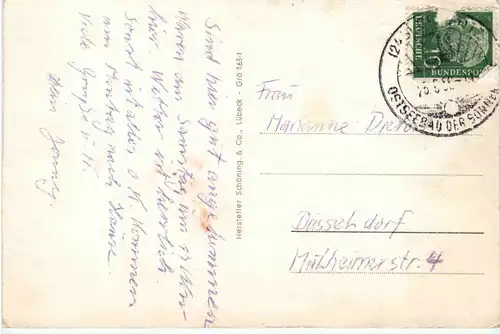 Sind hier gut angekommen
Waren am Samstag um 17 Uhr
hier. Wetter ist herrlich
sonst ist alles o.K. Kommen
am Montag nach Hause.
Viele Grüße u. K.
Dein
Hersteller Schöning & Co., Lübeck · Grö 163-1
DEUTSCHE
BUNDESPOST
10
OSTSEEBAD DER SONNEN
Frau
Marianne
Düsseldorf
Mülheimerstr. 4